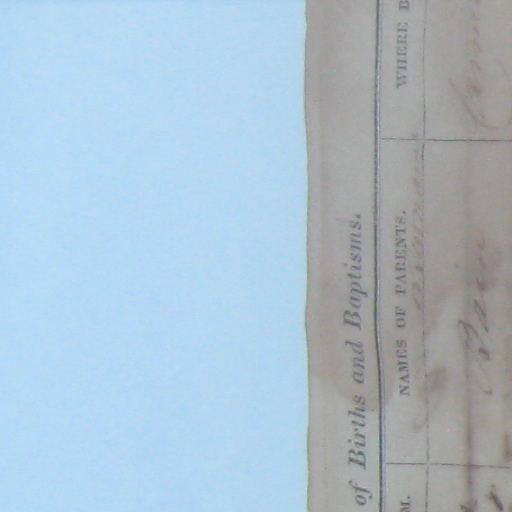 of Births and Baptisms.
M. NAMES OF PARENTS. WHERE B
Bain